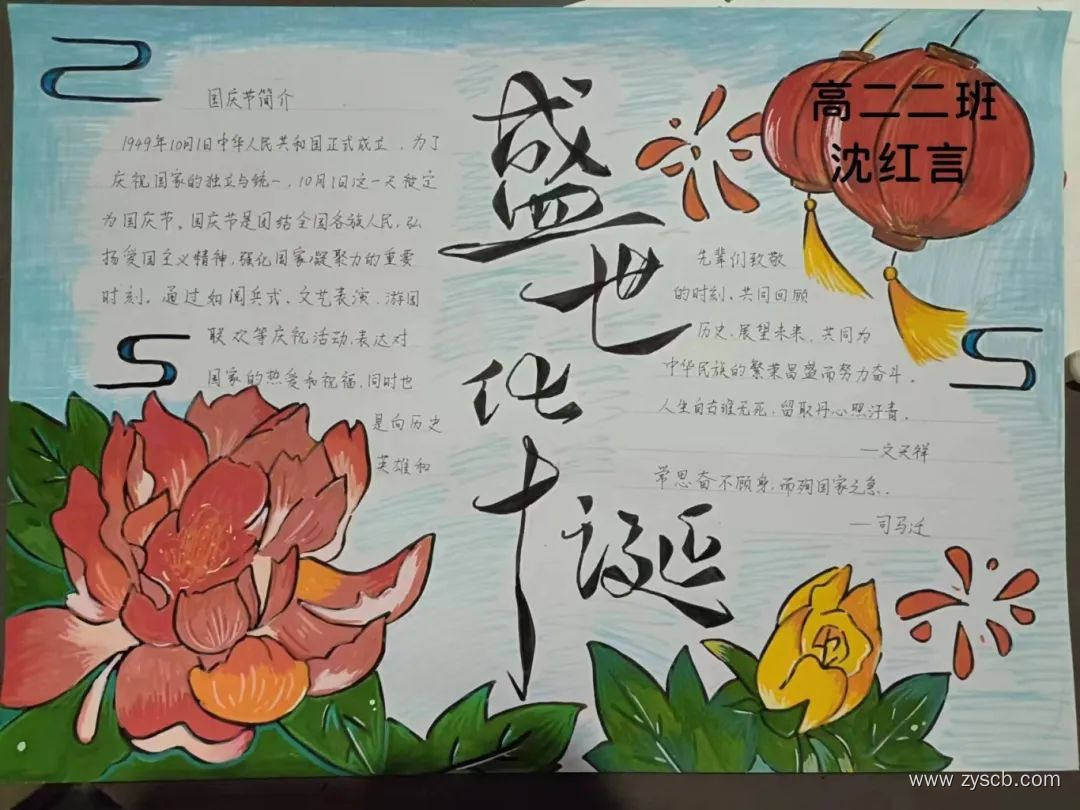 国庆节简介
1949年10月1日中华人民共和国正式成立，为了
庆祝国家的独立与统一，10月1日这一天被定
为国庆节。国庆节是团结全国各族人民，弘
扬爱国主义精神，强化国家凝聚力的重要
时刻。通过如阅兵式、文艺表演、游园
联欢等庆祝活动，表达对
国家的热爱和祝福，同时也
是向历史
英雄和
盛世华诞
高二二班
沈红言
先辈们致敬
的时刻。共同回顾
历史，展望未来，共同为
中华民族的繁荣昌盛而努力奋斗。
人生自古谁无死，留取丹心照汗青。
—文天祥
常思奋不顾身，而殉国家之急。
—司马迁
www.zyscb.com